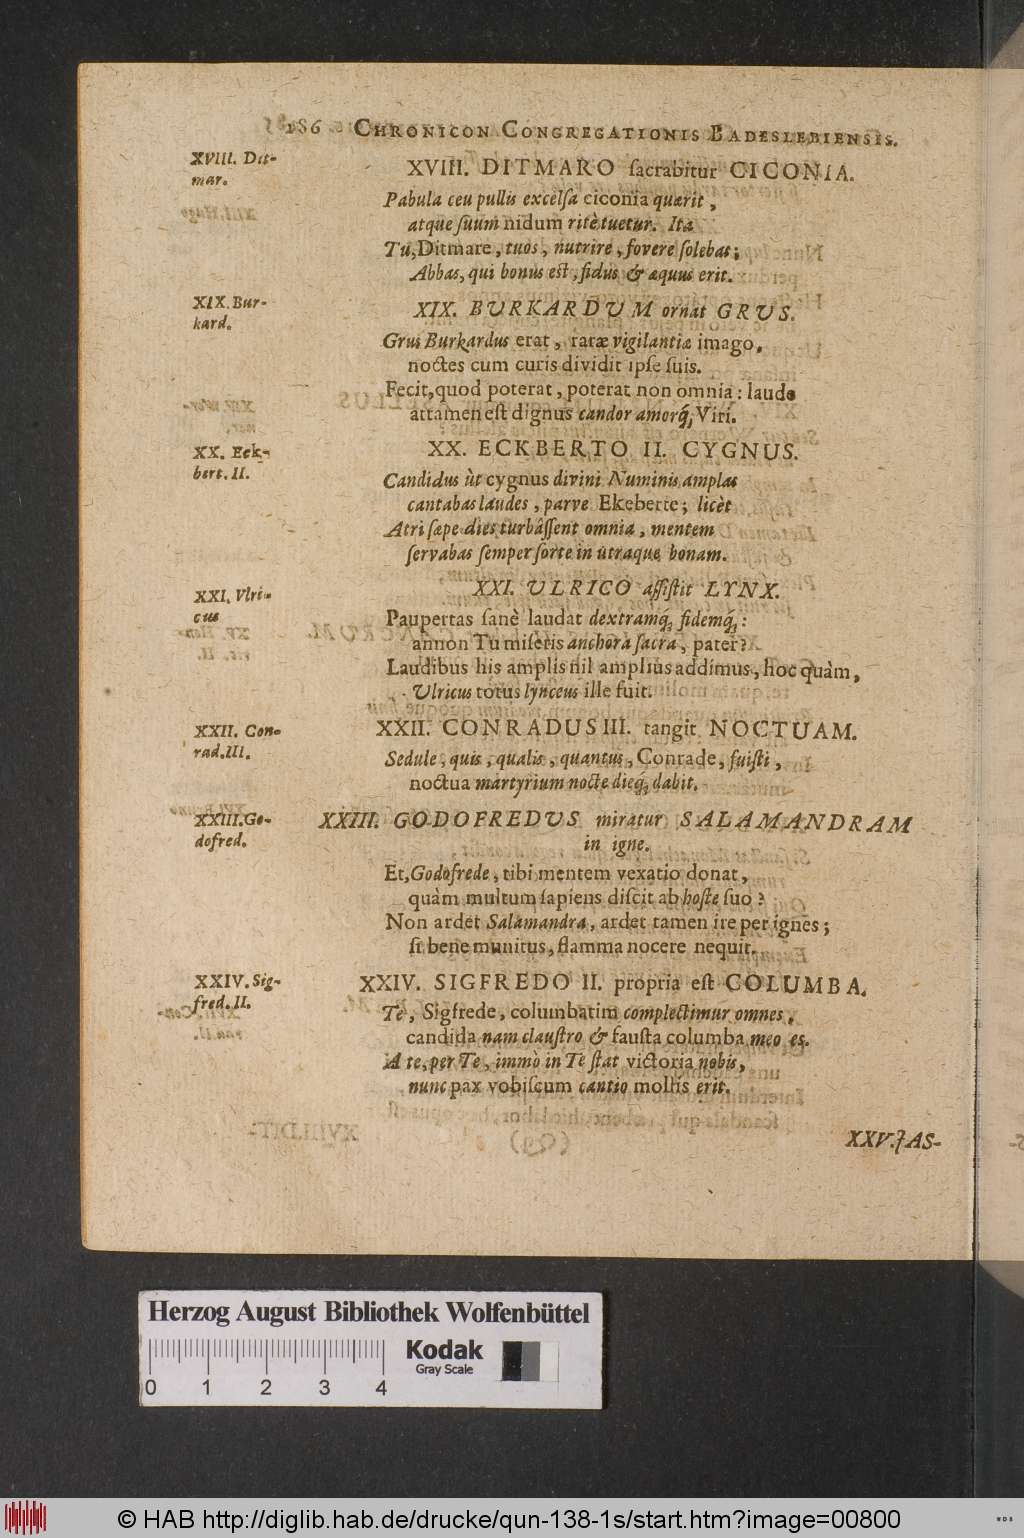 186 CHRONICON CONGREGATIONIS BADESLEBIENSIS.
XVIII. Dit-
mar.
XVIII. DITMARO ſacrabitur CICONIA.
Pabula ceu pullis excelſa ciconia quærit,
atque ſuum nidum ritè tuetur. Ita
Tu, Ditmare, tuos, nutrire, fovere ſolebas;
Abbas, qui bonus eſt, fidus & æquus erit.
XIX. Bur-
kard.
XIX. BURKARDUM ornat GRUS.
Grus Burkardus erat, raræ vigilantiæ imago,
noctes cum curis dividit ipſe ſuis.
Fecit, quod poterat, poterat non omnia: laude
attamen eſt dignus candor amorq́; Viri.
XX. Eck-
bert. II.
XX. ECKBERTO II. CYGNUS.
Candidus ùt cygnus divini Numinis amplas
cantabas laudes, parve Ekeberte; licèt
Atri ſæpe dies turbâſſent omnia, mentem
ſervabas ſemper ſorte in utraque bonam.
XXI. Vlri-
cus
XXI. ULRICO aſſiſtit LYNX.
Paupertas ſanè laudat dextramq́; fidemq́;:
annon Tu miſeris anchora ſacra, pater?
Laudibus his amplis nil ampliùs addimus, hoc quàm,
Ulricus totus lynceus ille fuit.
XXII. Con-
rad. III.
XXII. CONRADUS III. tangit NOCTUAM.
Sedule, quis, qualis, quantus, Conrade, fuiſti,
noctua martyrium nocte dieq́; dabit.
XXIII. Go-
dofred.
XXIII. GODOFREDVS miratur SALAMANDRAM
in igne.
Et, Godofrede, tibi mentem vexatio donat,
quàm multum ſapiens diſcit ab hoſte ſuo?
Non ardet Salamandra, ardet tamen ire per ignes;
ſi bene munitus, flamma nocere nequit.
XXIV. Sig-
fred. II.
XXIV. SIGFREDO II. propria eſt COLUMBA.
Te, Sigfrede, columbatim complectimur omnes,
candida nam clauſtro & fauſta columba meo es.
A te, per Te, immò in Te ſtat victoria nobis,
nunc pax vobiſcum cantio mollis erit.
XXV. JAS-
Herzog August Bibliothek Wolfenbüttel
Kodak
Gray Scale
0 1 2 3 4
© HAB http://diglib.hab.de/drucke/qun-138-1s/start.htm?image=00800